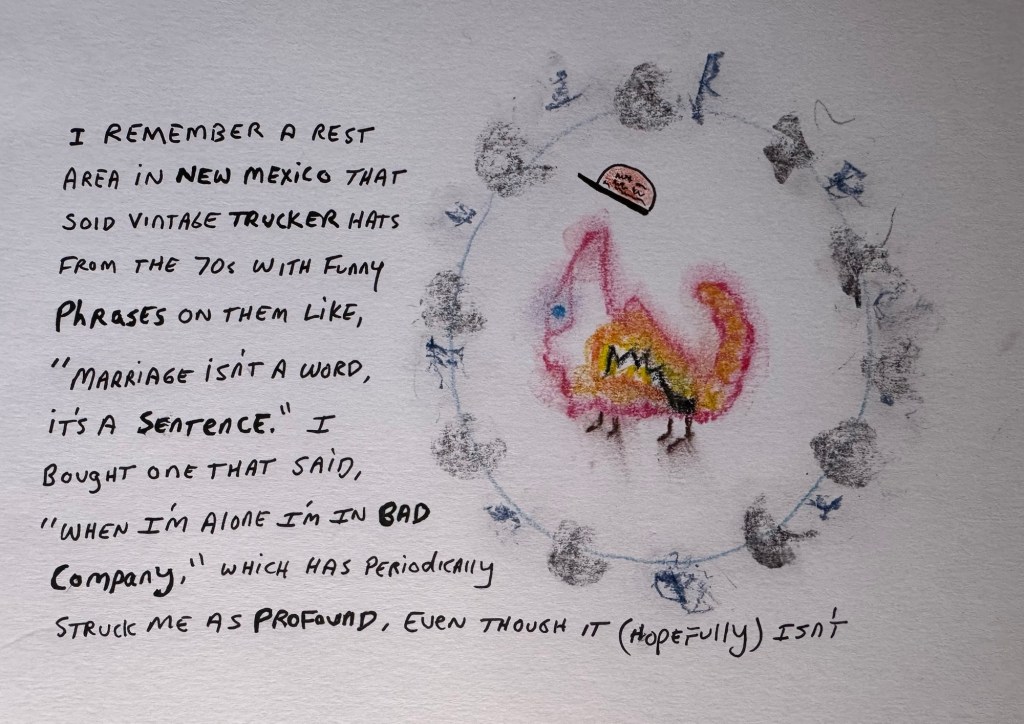 I REMEMBER A REST
AREA IN NEW MEXICO THAT
SOLD VINTAGE TRUCKER HATS
FROM THE 70s WITH FUNNY
PHRASES ON THEM LIKE,
"MARRIAGE ISN'T A WORD,
IT'S A SENTENCE." I
BOUGHT ONE THAT SAID,
"WHEN I'M ALONE I'M IN BAD
COMPANY," WHICH HAS PERIODICALLY
STRUCK ME AS PROFOUND, EVEN THOUGH IT (HOPEFULLY) ISN'T